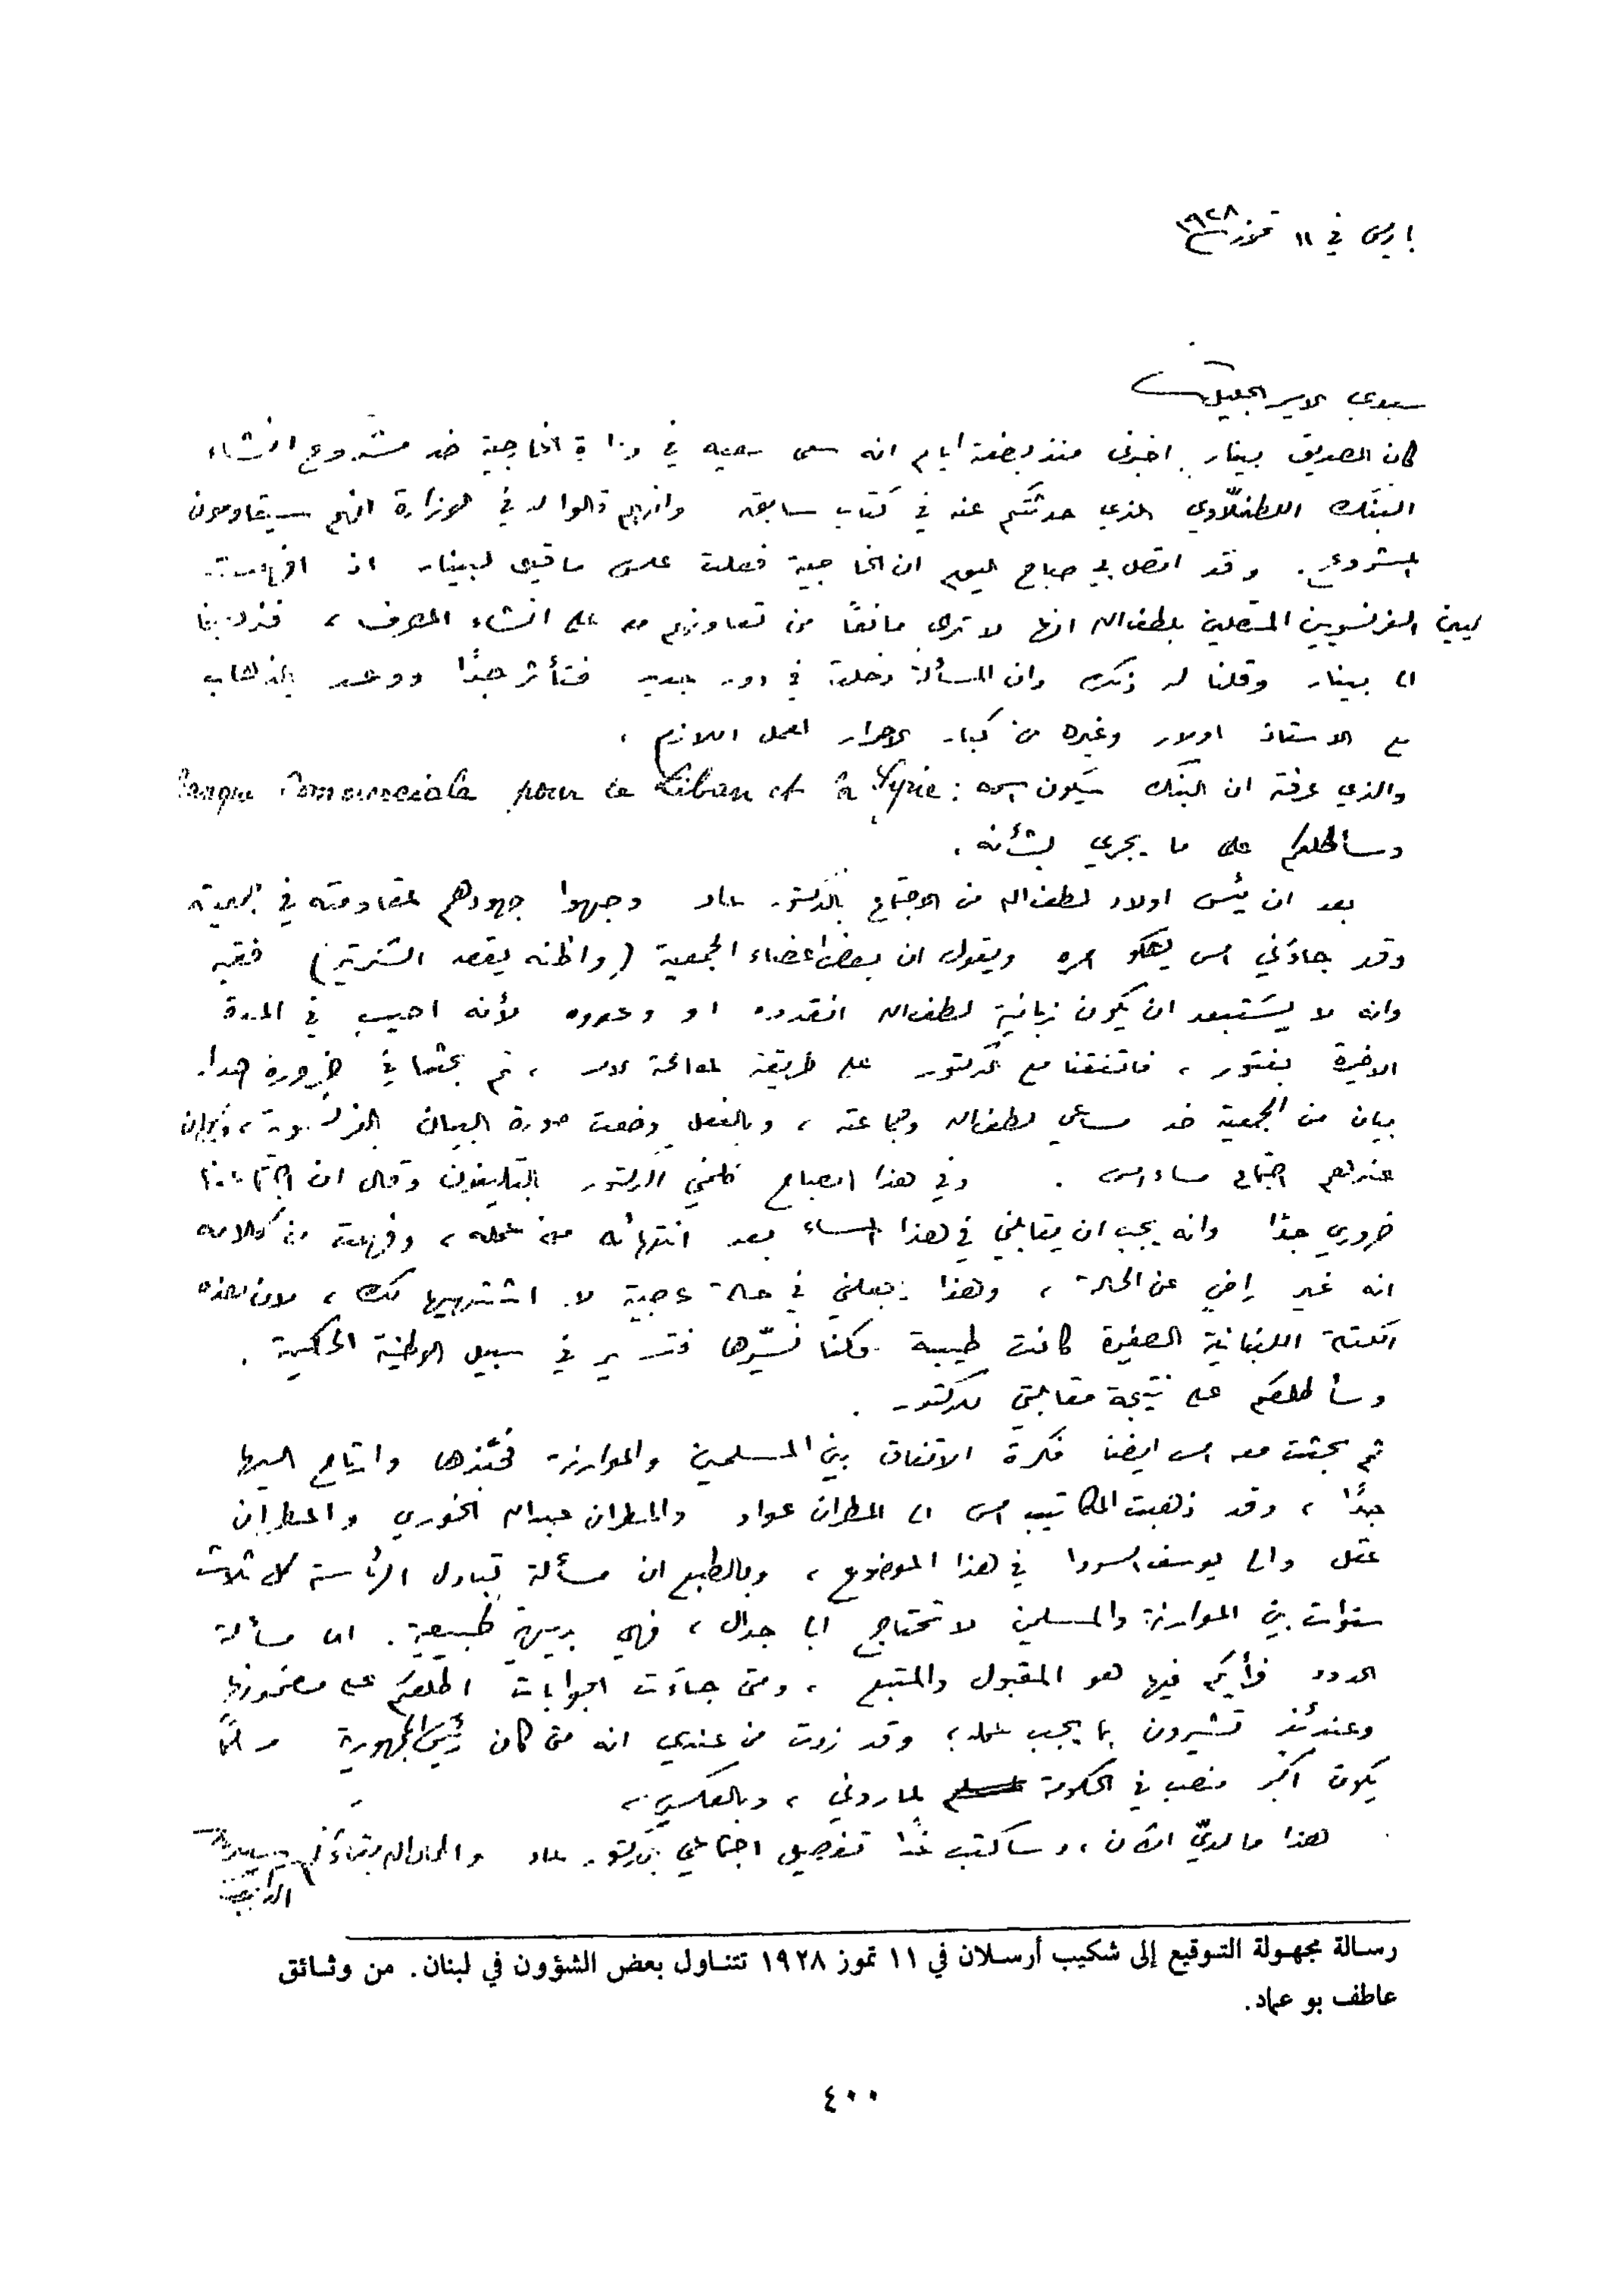 باريس في ١١ تموز ١٩٢٨
سيدي الامير الجليل
كان الصديق بينار اخبرني منذ بضعة ايام انه سعى سعيه في وزارة الخارجية ضد مشروع انشاء
البنك اللطفلّاوي الذي حدثتكم عنه في كتاب سابق وانهم قالوا له في الوزارة انهم سيقاومون
المشروع. وقد اتصل بي صباح اليوم ان الخارجية فعلت عكس ما قيل لبينار اذ افهمت
الفرنسويين المتصلين بلطف الله انها لا ترى مانعًا من تعاونهم معه على انشاء المصرف، فذهبنا
الى بينار وقلنا له ذلك وان المسألة دخلت في دور جديد فتأثر جدًا ووعد بالذهاب
مع الاستاذ اولار وغيره من كبار الاحرار لعمل اللازم،
والذي عرفته ان البنك سيكون اسمه: Banque Commerciale pour le Liban et la Syrie
وسأطلعكم على ما يجري بشأنه.
بعد ان يئس اولاد لطف الله من الاجتماع بالدكتور عماد وجهوا جهودهم لمقاومته في الجمعية
وقد جاءني امس يشكو امره ويقول ان بعض اعضاء الجمعية (واظنه يقصد الشرتير)
وانه لا يستبعد ان يكون زبانية لطف الله انقدوه او وعدوه لأنه اجيب في المدة
الاخيرة بفتور، فاتفقنا مع الدكتور على طريقة لمعالجة الامر، ثم بحثنا في ضرورة اصدار
بيان من الجمعية ضد مساعي لطف الله وجماعته، وبالفعل وضعت صورة البيان بالفرنسوية، وكان
عندهم اجتماع مساء امس. وفي هذا الصباح كلمني الدكتور بالتليفون وقال ان اجتماعنا
ضروري جدًا وانه يجب ان يقابلني في هذا المساء بعد انتهائه من عمله، وفهمت من كلامه
انه غير راضٍ عن الحالة، وهذا يجعلني في حالة عصبية لا اشتهيها لك، لان هذه
الكتلة اللبنانية الصغيرة كانت طيبة وكنا نسيّرها فتسير في سبيل الوطنية الحكيمة.
وسأطلعكم على نتيجة مقابلتي للدكتور.
ثم بحثت معه امس ايضًا فكرة الاتفاق بين المسلمين والموارنة فحبّذها وارتاح اليها
جدًا، وقد ذهبت المكاتيب امس الى المطران عواد والمطران عبدالله الخوري والمطران
عقل والى يوسف السودا في هذا الموضوع، وبالطبع ان مسألة تبادل الرئاسة كل ثلاث
سنوات بين الموارنة والمسلمين لا تحتاج الى جدال، فهي بديهية طبيعية. اما مسألة
الحدود فرأيكم فيها هو المقبول والمتبع، ومتى جاءت الجوابات اطلعكم على مضمونها
وعندئذٍ تشيرون بما يجب عمله، وقد زدت من عندي انه متى كان رئيس الجمهورية مسلمًا
يكون اكبر منصب في الحكومة لماروني، وبالعكس.
هذا ما لديّ الآن، وسأكتب غدًا تفصيل اجتماعي بالدكتور عماد
رسالة مجهولة التوقيع إلى شكيب أرسلان في ١١ تموز ١٩٢٨ تتناول بعض الشؤون في لبنان. من وثائق
عاطف بو عماد.
٤٠٠